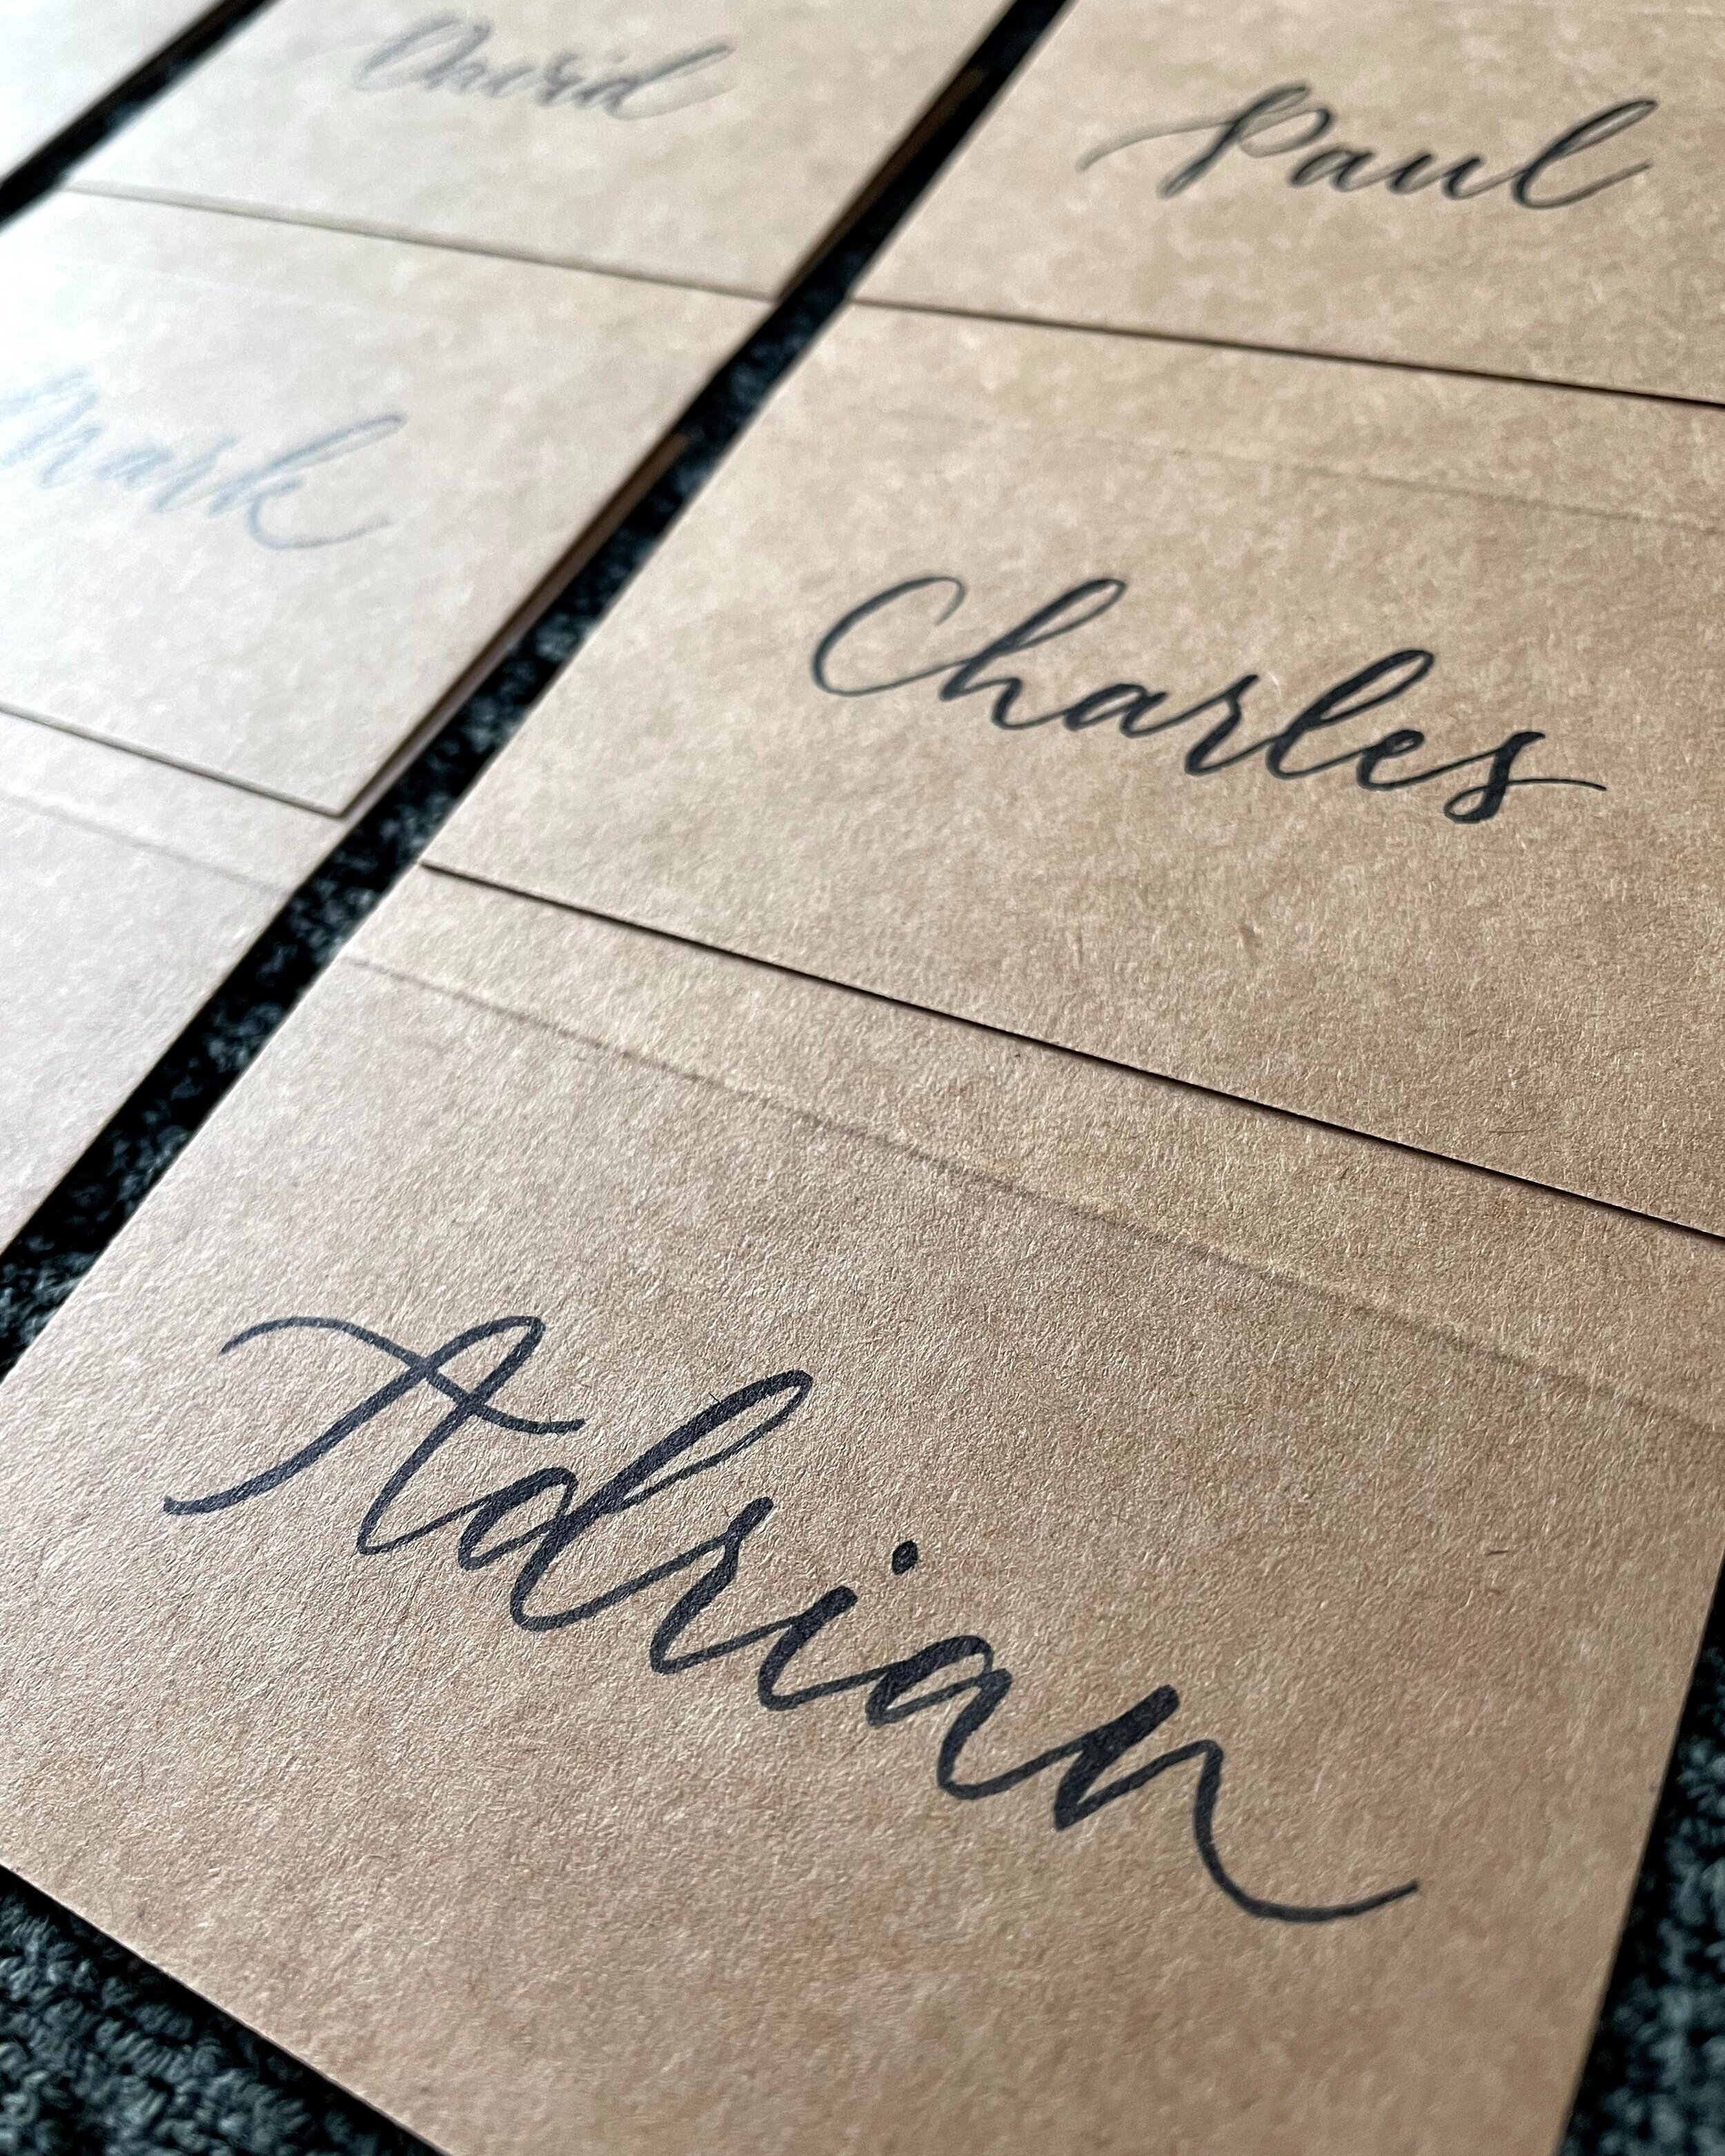 David
Paul
Mark
Charles
Adrian